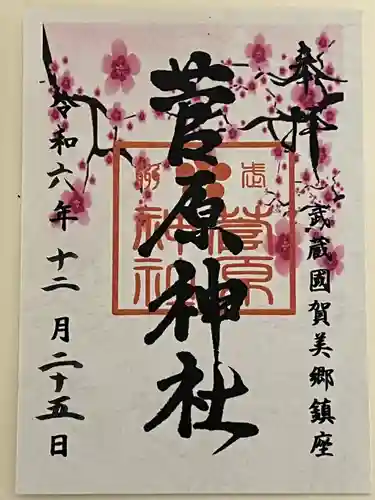 奉拝
武蔵國賀美郷鎮座
菅原神社
令和六年十二月二十五日